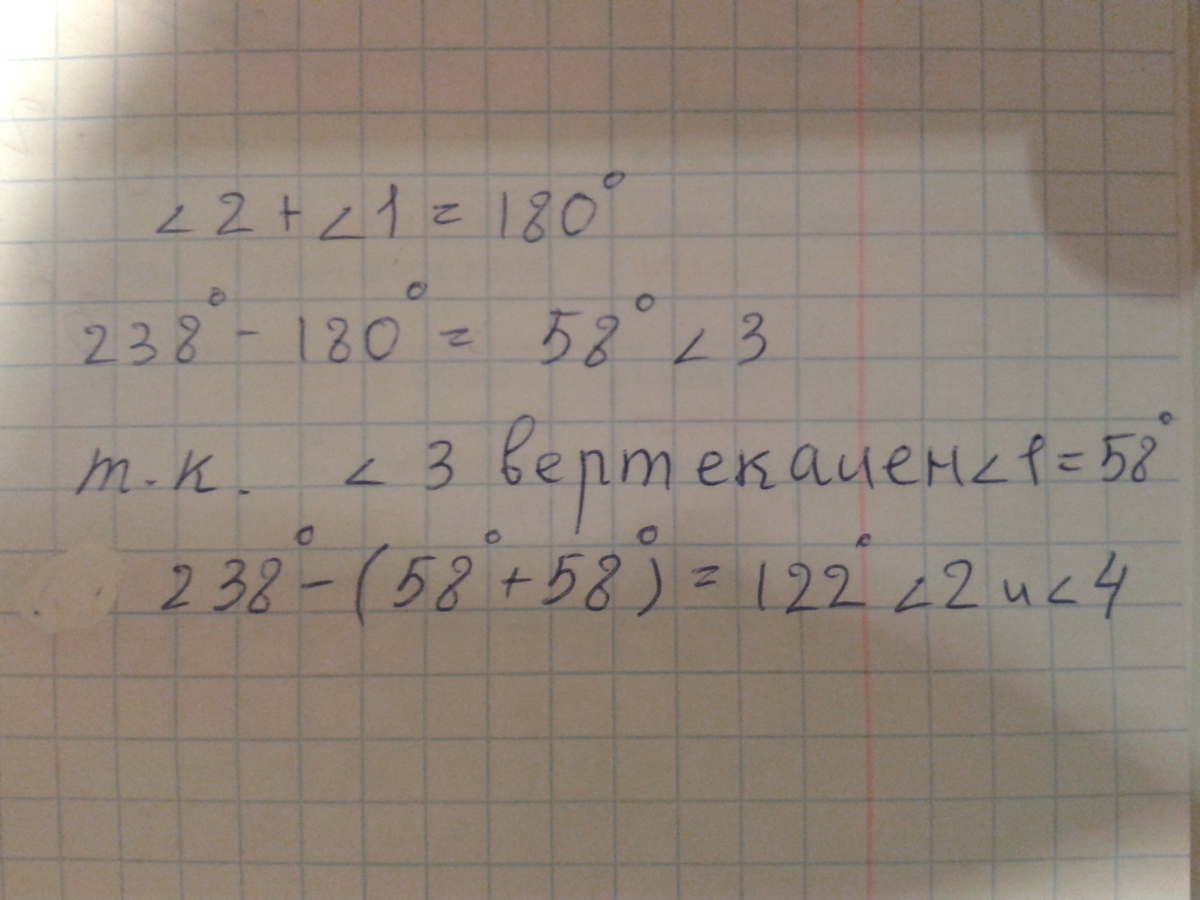 ∠2+∠1=180°
238°-180°= 58° ∠3
т.к. ∠3 вертекален∠1=58°
238°-(58°+58°)=122° ∠2 и ∠4